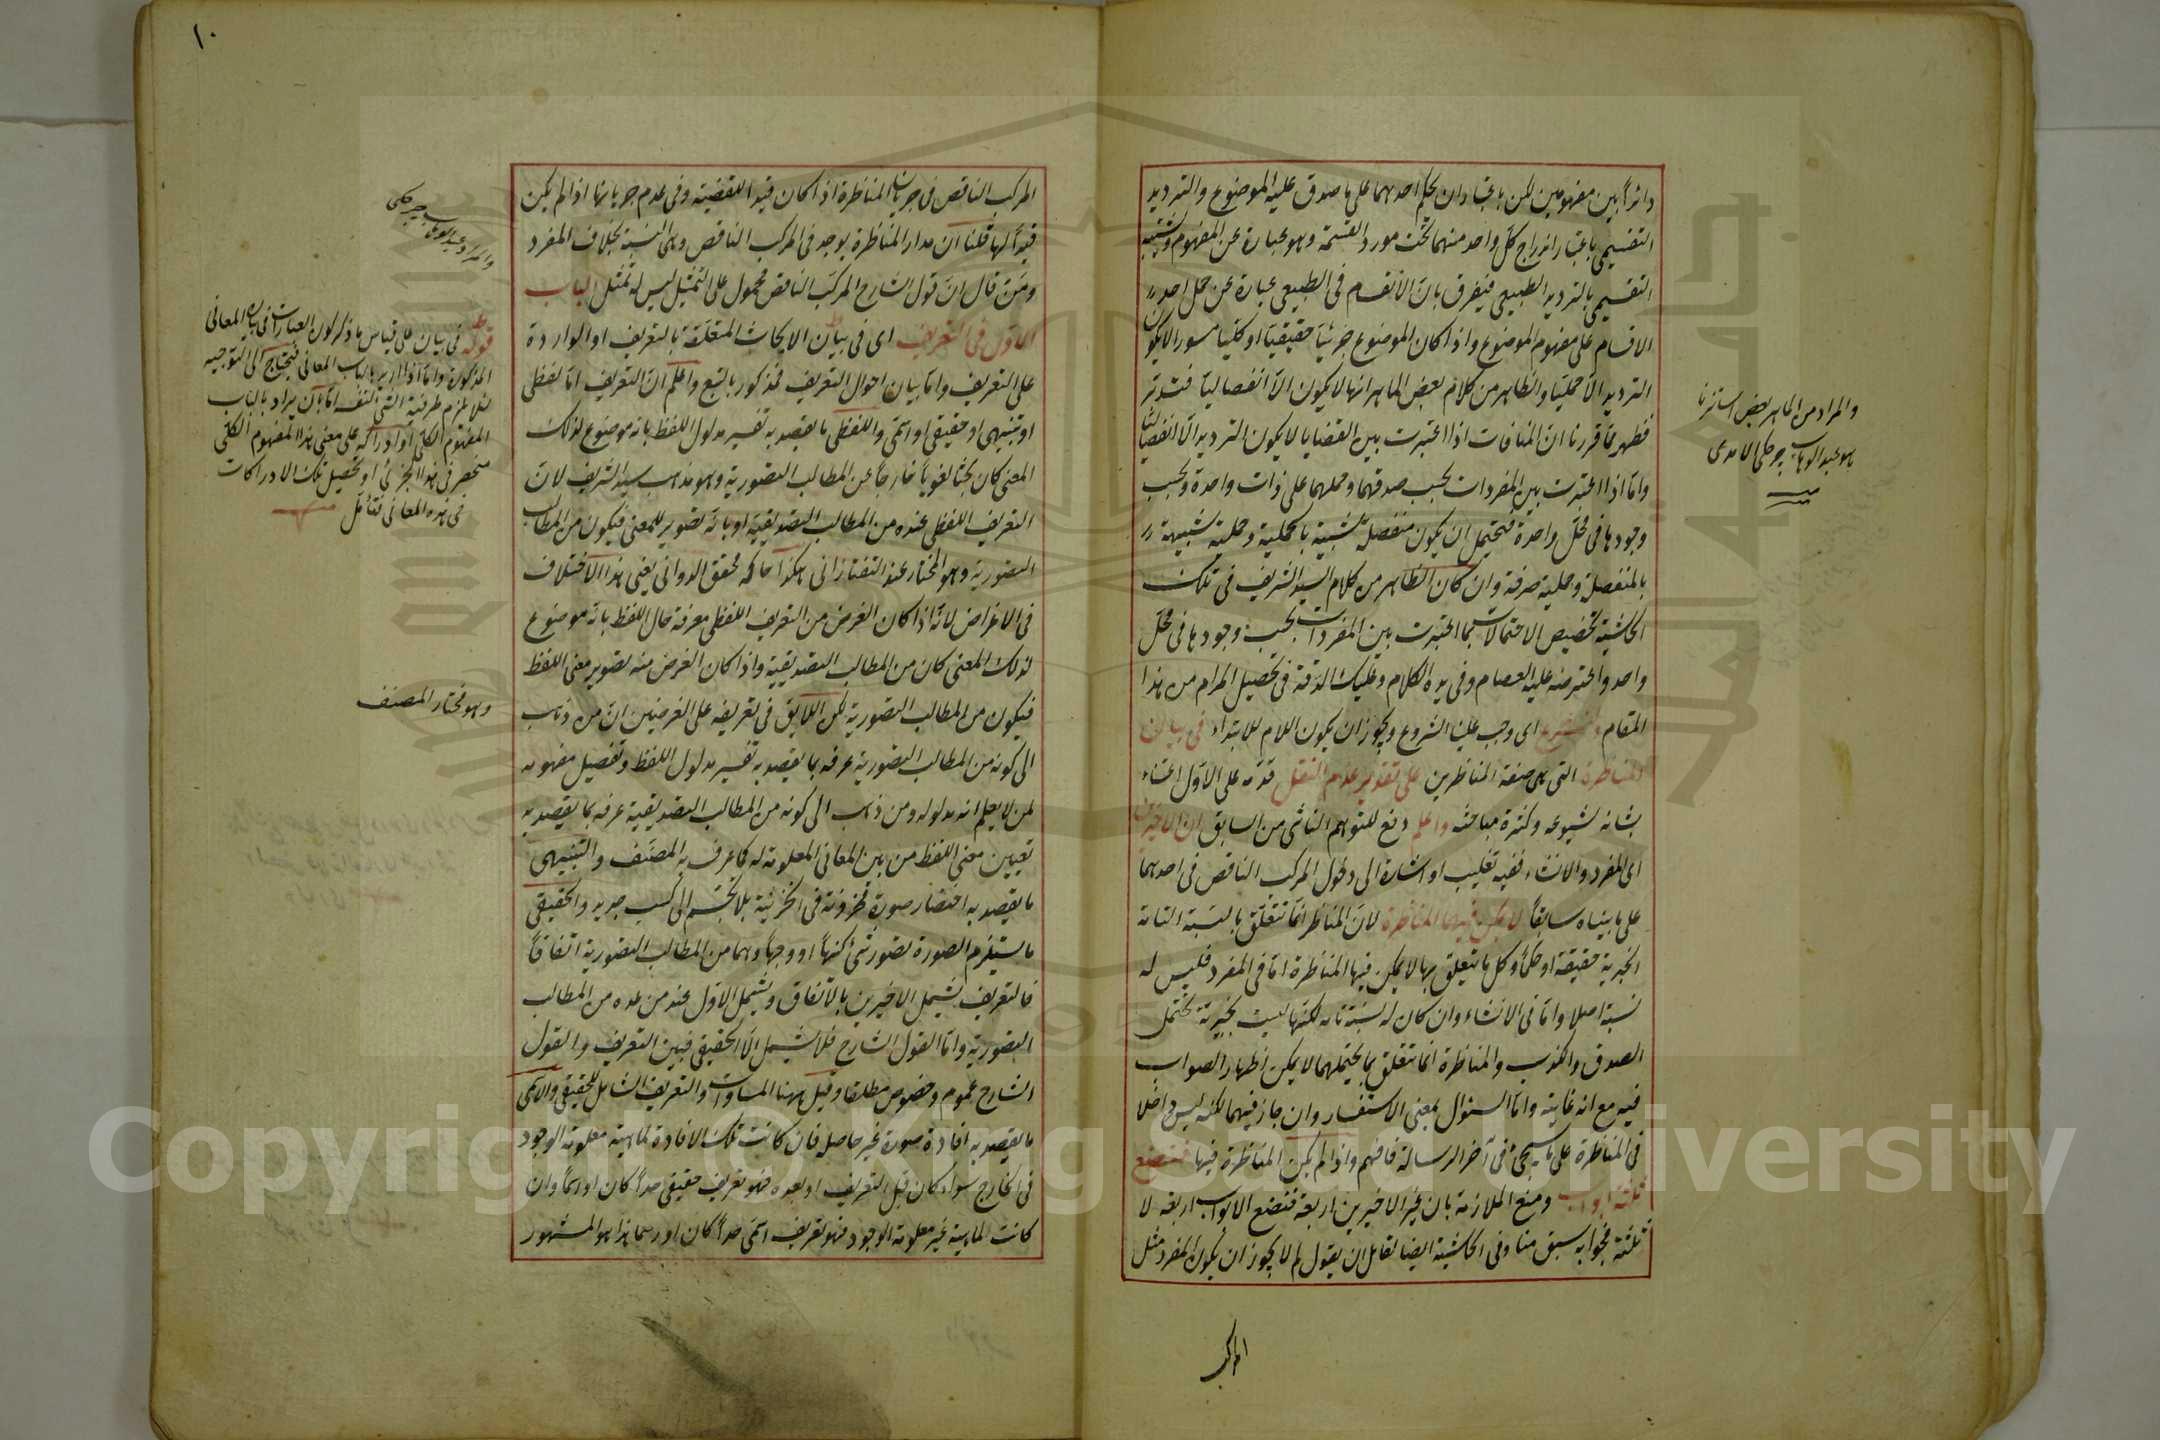 دائراً بين مفهومين لكن باعتبار ان يحكم احدهما على ما صدق عليه الموضوع والترديد
التقسيمى باعتبار اندراج كل واحد منهما تحت مورد القسمة وهو عبارة عن المفهوم ويشتبه
التقسيمى بالترديد الطبيعى فيفرق بان الانقسام فى الطبيعى عبارة عن حمل احد
الاقسام على مفهوم الموضوع واذا كان الموضوع جزئياً حقيقياً او كلياً مسورا لا يكون
الترديد الا حمليا والظاهر من كلام بعض الماهر انها لا يكون الا انفصاليا فتدبر
فظهر مما قررنا ان المنافات اذا اعتبرت بين القضايا لا يكون الترديد الا انفصاليا
واما اذا اعتبرت بين المفردات بحسب صدقهما وحملهما على ذات واحدة وبحسب
وجودها فى محل واحدة فيحتمل ان يكون منفصلة شبيهة بالحملية وحملية شبيهة
بالمنفصلة وحملية صرفة وان كان الظاهر من كلام السيد الشريف فى تلك
الحاشية تخصيص الاحتمالات بما اعتبرت بين المفردات بحسب وجودها فى محل
واحد واعترضه عليه العصام وفى يده الكلام وعليك الدقة فى تحصيل المرام من هذا
المقام اى وجب علينا الشروع ويجوز ان يكون اللام للابتداء فى بيان
المناظرة التى هى صفة المناظرين على تقدير عدم النقل قدمه على الاول اعتناء
بشانه لشيوعه وكثرة مباحثه واعلم دفع للتوهم الناشى من السابق ان الاخيرين
اى المفرد والانشاء ففيه تغليب او اشارة الى دخول المركب الناقص فى احدهما
على ما بيناه سابقاً لا يمكن فيهما المناظرة لان المناظرة انما تتعلق بالنسبة التامة
الخبرية حقيقة او حكماً وكل ما يتعلق بها لا يمكن فيها المناظرة اما فى المفرد فليس له
نسبة اصلا واما فى الانشاء وان كان له نسبة تامة لكنها ليست بخبرية تحتمل
الصدق والكذب والمناظرة انما تتعلق بما يحتملهما لا يمكن اظهار الصواب
فيه مع انه غايته واما السئوال بمعنى الاستفسار وان جاز فيهما لكنه ليس داخلا
فى المناظرة على ما سيجى فى آخر الرسالة فافهم واذا لم يكن المناظرة فيها فنضع
ثلثة ابواب ومنع الملازمة بان غير الاخيرين اربعة فنضع الابواب اربعة لا
ثلثة فجوابه سبق منا وفى الحاشية ايضا لقائل ان يقول لم لا يجوز ان يكون المفرد مثل
المركب
والمراد من الماهر بعض استاذنا
هو عبد الوهاب چوحلى الامدى
١٠
المركب الناقص فى جريان المناظرة اذا كان قيد اللقضية وفى عدم جريانها اذا لم يكن
قيداً لها قلنا ان مدار المناظرة يوجد فى المركب الناقص وهى النسبة بخلاف المفرد
ومن قال ان قول الشارح المركب الناقص محمول على التمثيل ليس له تمثل الباب
الاول فى التعريف اى فى بيان الابحاث المتعلقة بالتعريف او الواردة
على التعريف واما بيان احوال التعريف فمذكور بالتبع واعلم ان التعريف اما لفظى
او تنبيهى او حقيقى او اسمى واللفظى ما يقصد به تفسير مدلول اللفظ بانه موضوع لذلك
المعنى كان بحثا لغوياً خارجاً عن المطالب التصورية وهو مذهب سيد الشريف لان
التعريف اللفظى عنده من المطالب التصديقية او بانه تصوير للمعنى فيكون من المطالب
التصورية وهو المختار عند التفتازانى هكذا حاكمه محقق الدوانى يعنى هذا الاختلاف
فى الاغراض لانه اذا كان الغرض من التعريف اللفظى معرفة حال اللفظ بانه موضوع
لذلك المعنى كان من المطالب التصديقية واذا كان الغرض منه تصوير معنى اللفظ
فيكون من المطالب التصورية لكن اللايق فى تعريفه على الغرضين ان من ذهب
الى كونه من المطالب التصورية عرفه بما يقصد به تفسير مدلول اللفظ وتفصيل مفهومه
لمن لا يعلم انه مدلوله ومن ذهب الى كونه من المطالب التصديقية عرفه بما يقصد به
تعيين معنى اللفظ من بين المعانى المعلومة له كما عرف به المصنف والتنبيهى
ما يقصد به احضار صورة مخزونة فى الخزينة بلا تجشم الى كسب جديد والحقيقى
ما يستلزم الصورة تصور شئ كنهاً او وجهاً وهما من المطالب التصورية اتفاقاً
فالتعريف يشمل الاخيرين بالاتفاق ويشمل الاول عند من عده من المطالب
التصورية واما القول الشارح فلا يشمل الا الحقيقى فبين التعريف والقول
الشارح عموم وخصوص مطلقا وقيل بينهما المساوات والتعريف الشامل للحقيقى والاسمى
ما يقصد به افادة صورة غير حاصلة فان كانت تلك الافادة لماهية معلومة الوجود
فى الخارج سواء كان قبل التعريف او بعده فهو تعريف حقيقى حداً كان او رسماً وان
كانت الماهية غير معلومة الوجود فهو تعريف اسمى حداً كان او رسما هذا هو المشهور
والمراد عبد الوهاب چوحلى
قوله فى بيان على قياس ما ذكر لكون العبارات فى بيان المعانى
المذكورة واما اذا اريد بالباب المعانى فيحتاج الى التوجيه
لئلا يلزم ظرفية الشئ لنفسه اما بان يراد بالباب
المفهوم الكلى او ادراكه على معنى هذا المفهوم الكلى
منحصر فى هذا الجزئى او تحصيل تلك الادراكات
فى هذه المعانى فتأمل
وهو مختار المصنف
Copyright © King Saud University